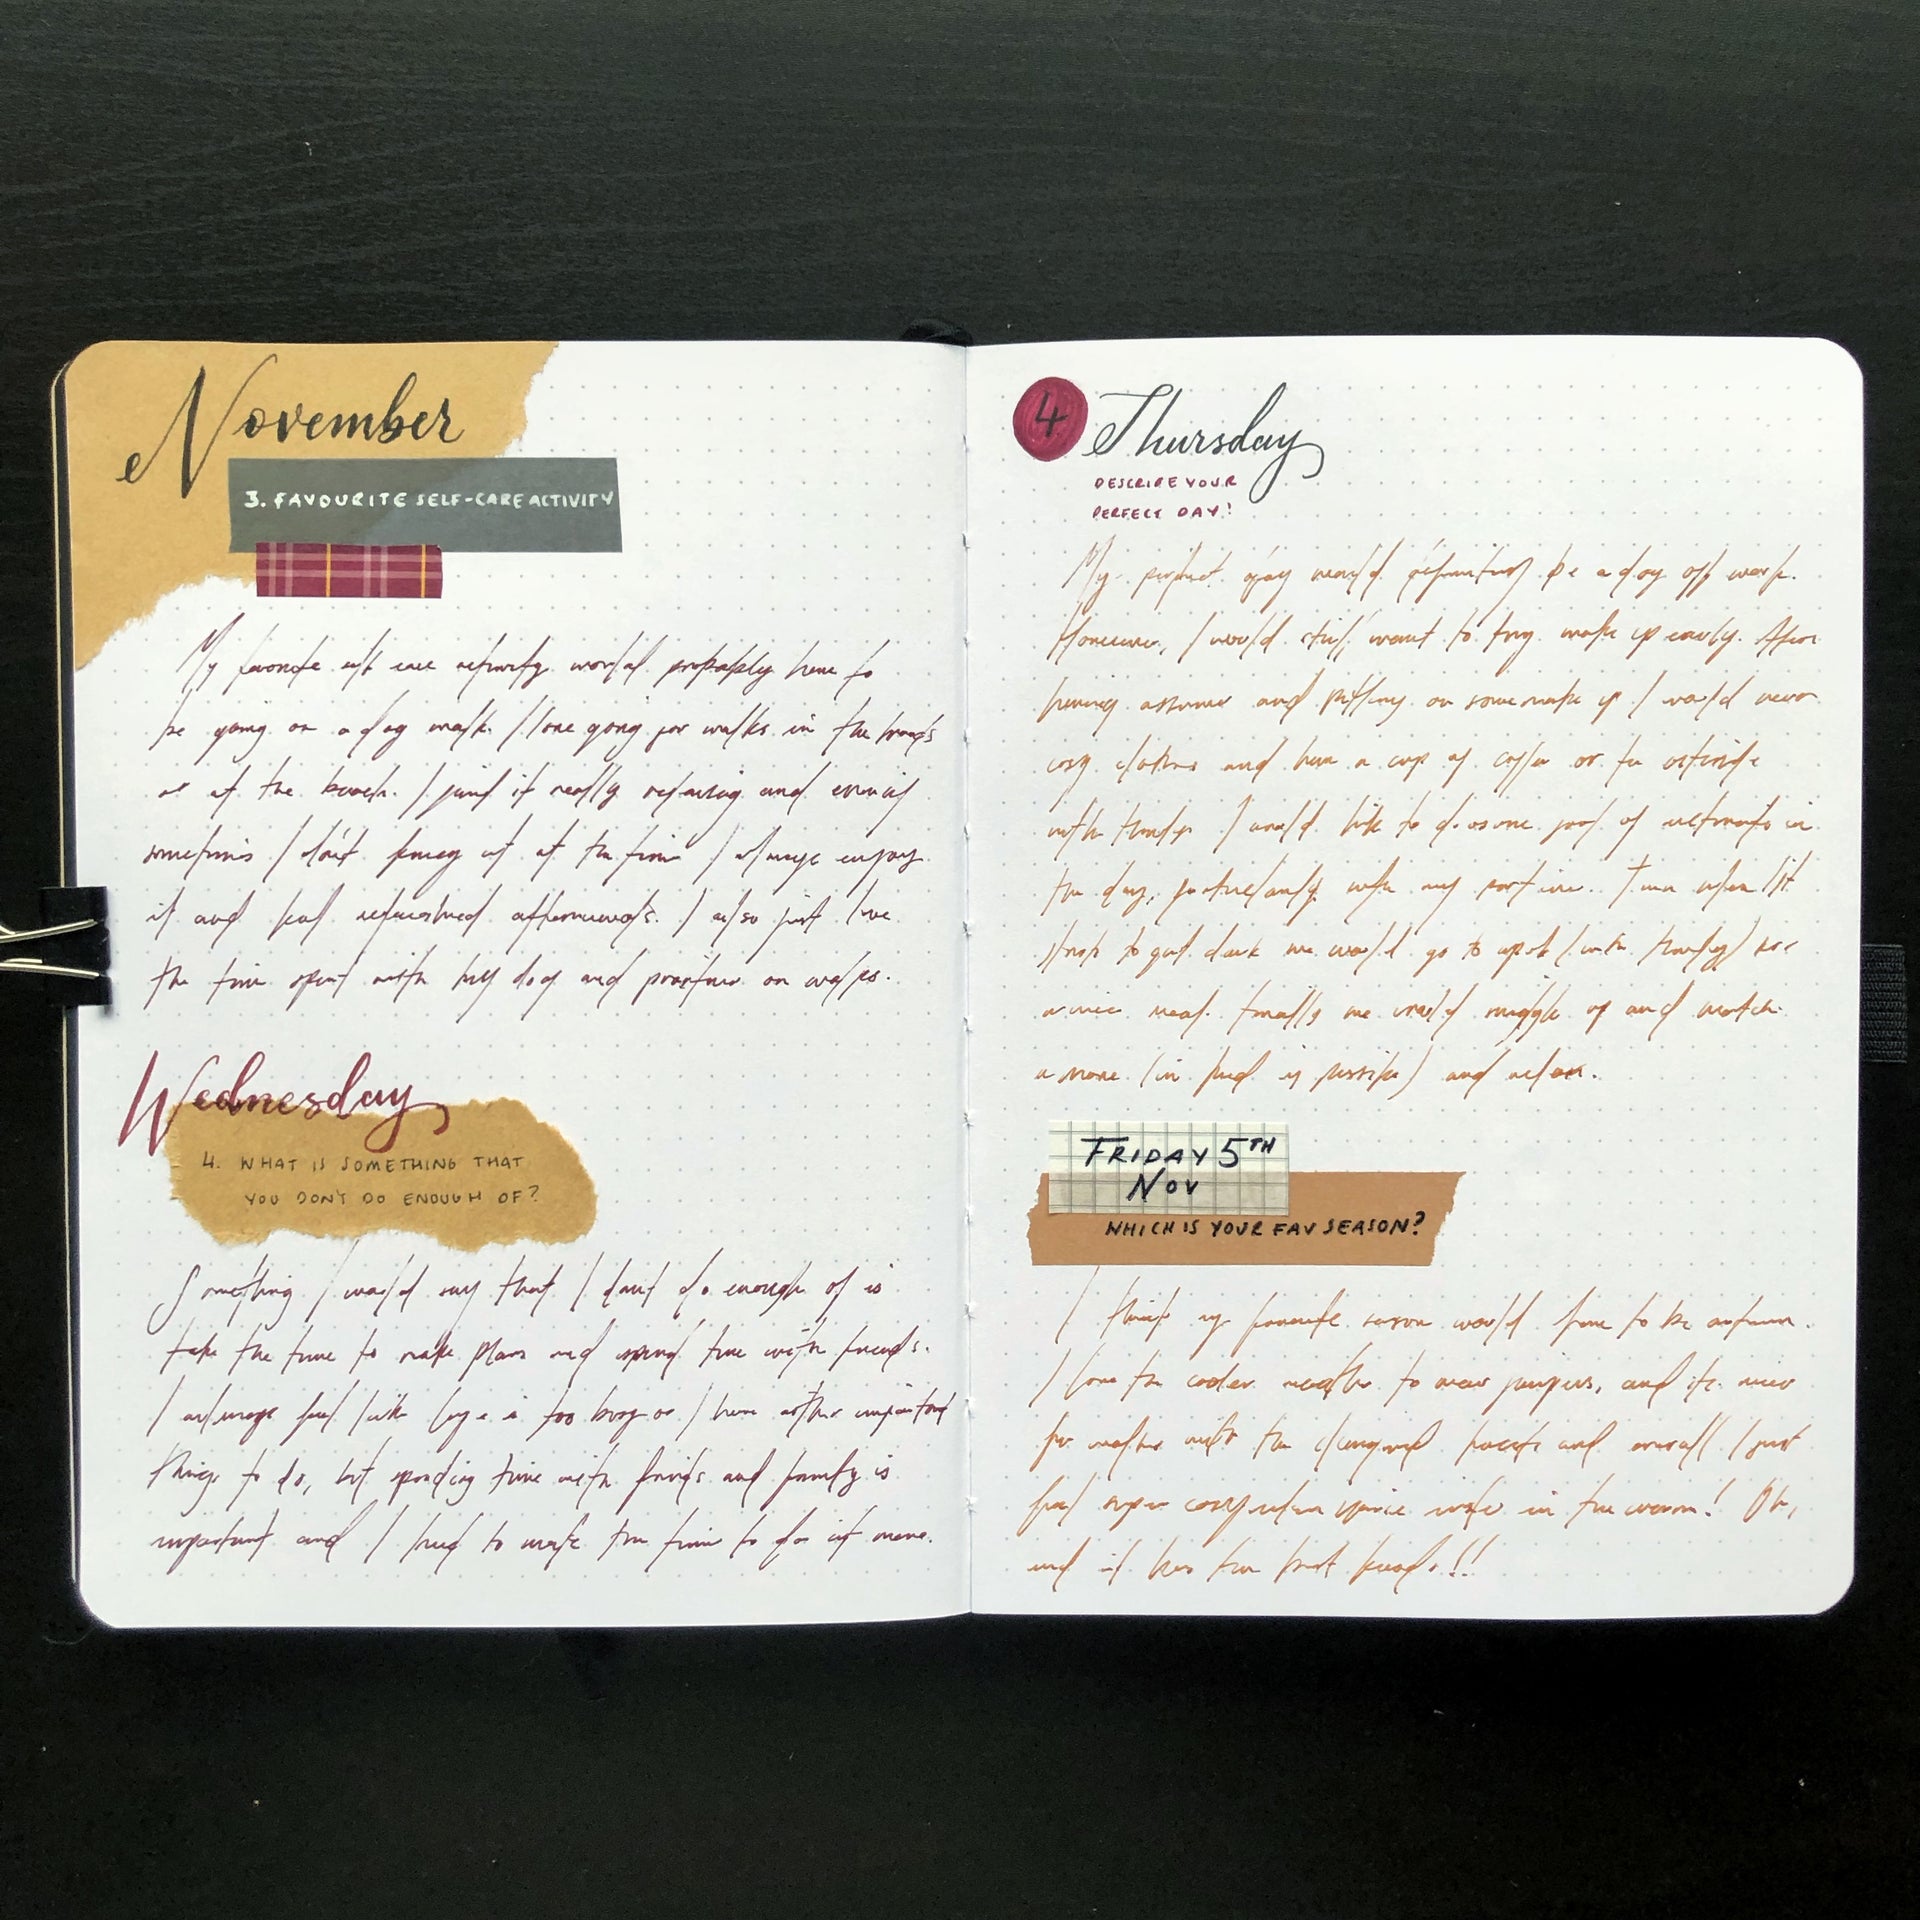 November
3. FAVOURITE SELF-CARE ACTIVITY
My favorite self care activity would probably have to
be going on a dog walk. I love going for walks in the woods
or at the beach. I find it really relaxing and even if
sometimes I don't fancy it at the time I always enjoy
it and feel refreshed afterwards. I also just love
the time spent with my dog and partner on walks.
Wednesday
4. WHAT IS SOMETHING THAT
YOU DON'T DO ENOUGH OF?
Something I would say that I don't do enough of is
take the time to make plans and spend time with friends.
I always feel like life is too busy or I have other important
things to do, but spending time with friends and family is
important and I need to make the time to do it more.
4 Thursday
DESCRIBE YOUR
PERFECT DAY!
My perfect day would definitely be a day off work.
However, I would still want to try wake up early. After
having a shower and putting on some make up I would wear
cosy clothes and have a cup of coffee or tea outside
with I would like to do some of in
the day, with my partner. Then when it
to get dark we would go to (with
a nice meal. Finally we would snuggle up and watch
a movie (in bed if possible) and relax.
FRIDAY 5TH
NOV
WHICH IS YOUR FAV SEASON?
I think my favourite season would have to be autumn.
I love the cooler weather to wear jumpers, and it's nice
for walks with the and overall I just
feel super cosy when inside in the warm! Oh,
and it has the best !!